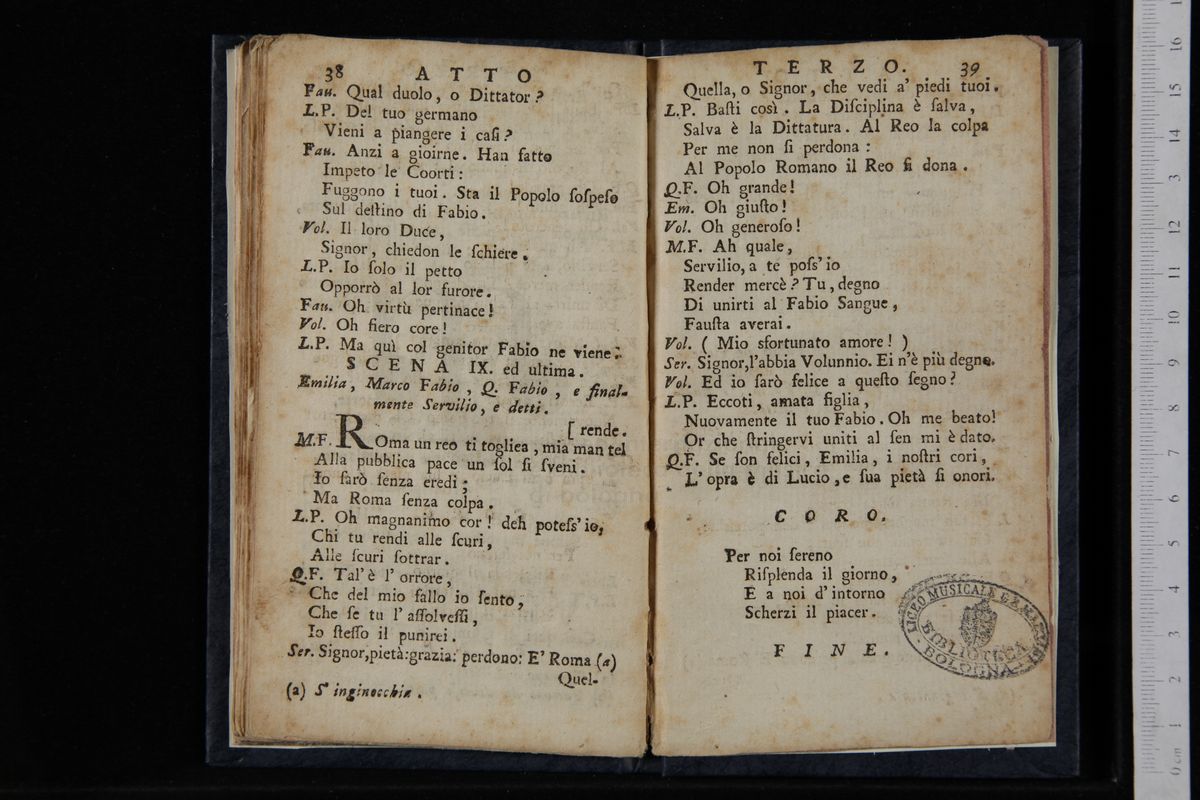 38 ATTO
Fau. Qual duolo, o Dittator?
L.P. Del tuo germano
Vieni a piangere i caſi?
Fau. Anzi a gioirne. Han fatto
Impeto le Coorti:
Fuggono i tuoi. Sta il Popolo ſoſpeſo
Sul deſtino di Fabio.
Vol. Il loro Duce,
Signor, chiedon le ſchiere.
L.P. Io ſolo il petto
Opporrò al lor furore.
Fau. Oh virtù pertinace!
Vol. Oh fiero core!
L.P. Ma quì col genitor Fabio ne viene.
SCENA IX. ed ultima.
Emilia, Marco Fabio, Q. Fabio, e final-
mente Servilio, e detti.
[ rende.
M.F. ROma un reo ti togliea, mia man tel
Alla pubblica pace un ſol ſi ſveni.
Io ſarò ſenza eredi;
Ma Roma ſenza colpa.
L.P. Oh magnanimo cor! deh poteſs' io,
Chi tu rendi alle ſcuri,
Alle ſcuri ſottrar.
Q.F. Tal' è l' orrore,
Che del mio fallo io ſento,
Che ſe tu l' aſſolveſſi,
Io ſteſſo il punirei.
Ser. Signor,pietà:grazia: perdono: E' Roma (a)
Quel-
(a) S' inginocchia.
TERZO. 39
Quella, o Signor, che vedi a' piedi tuoi.
L.P. Baſti così. La Diſciplina è ſalva,
Salva è la Dittatura. Al Reo la colpa
Per me non ſi perdona:
Al Popolo Romano il Reo ſi dona.
Q.F. Oh grande!
Em. Oh giuſto!
Vol. Oh generoſo!
M.F. Ah quale,
Servilio, a te poſs' io
Render mercè? Tu, degno
Di unirti al Fabio Sangue,
Fauſta averai.
Vol. ( Mio sfortunato amore! )
Ser. Signor,l'abbia Volunnio. Ei n'è più degno.
Vol. Ed io ſarò felice a queſto ſegno?
L.P. Eccoti, amata figlia,
Nuovamente il tuo Fabio. Oh me beato!
Or che ſtringervi uniti al ſen mi è dato.
Q.F. Se ſon felici, Emilia, i noſtri cori,
L' opra è di Lucio, e ſua pietà ſi onori.
CORO.
Per noi ſereno
Riſplenda il giorno,
E a noi d' intorno
Scherzi il piacer.
FINE.
LICEO MUSICALE G.B. MARTINI
BIBLIOTECA
BOLOGNA
0 cm 1 2 3 4 5 6 7 8 9 10 11 12 13 14 15 16